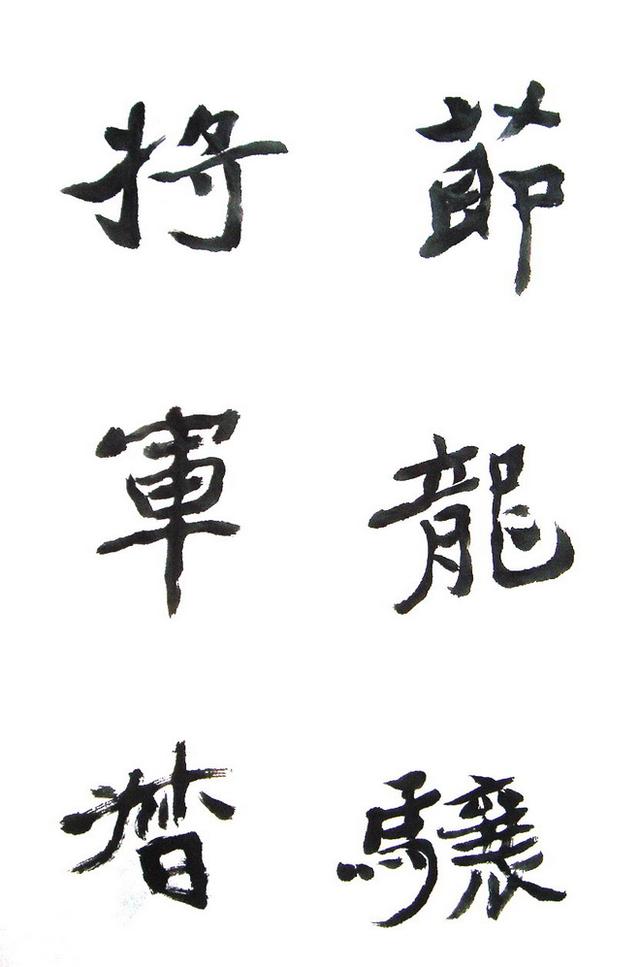 節龍驤
將軍督